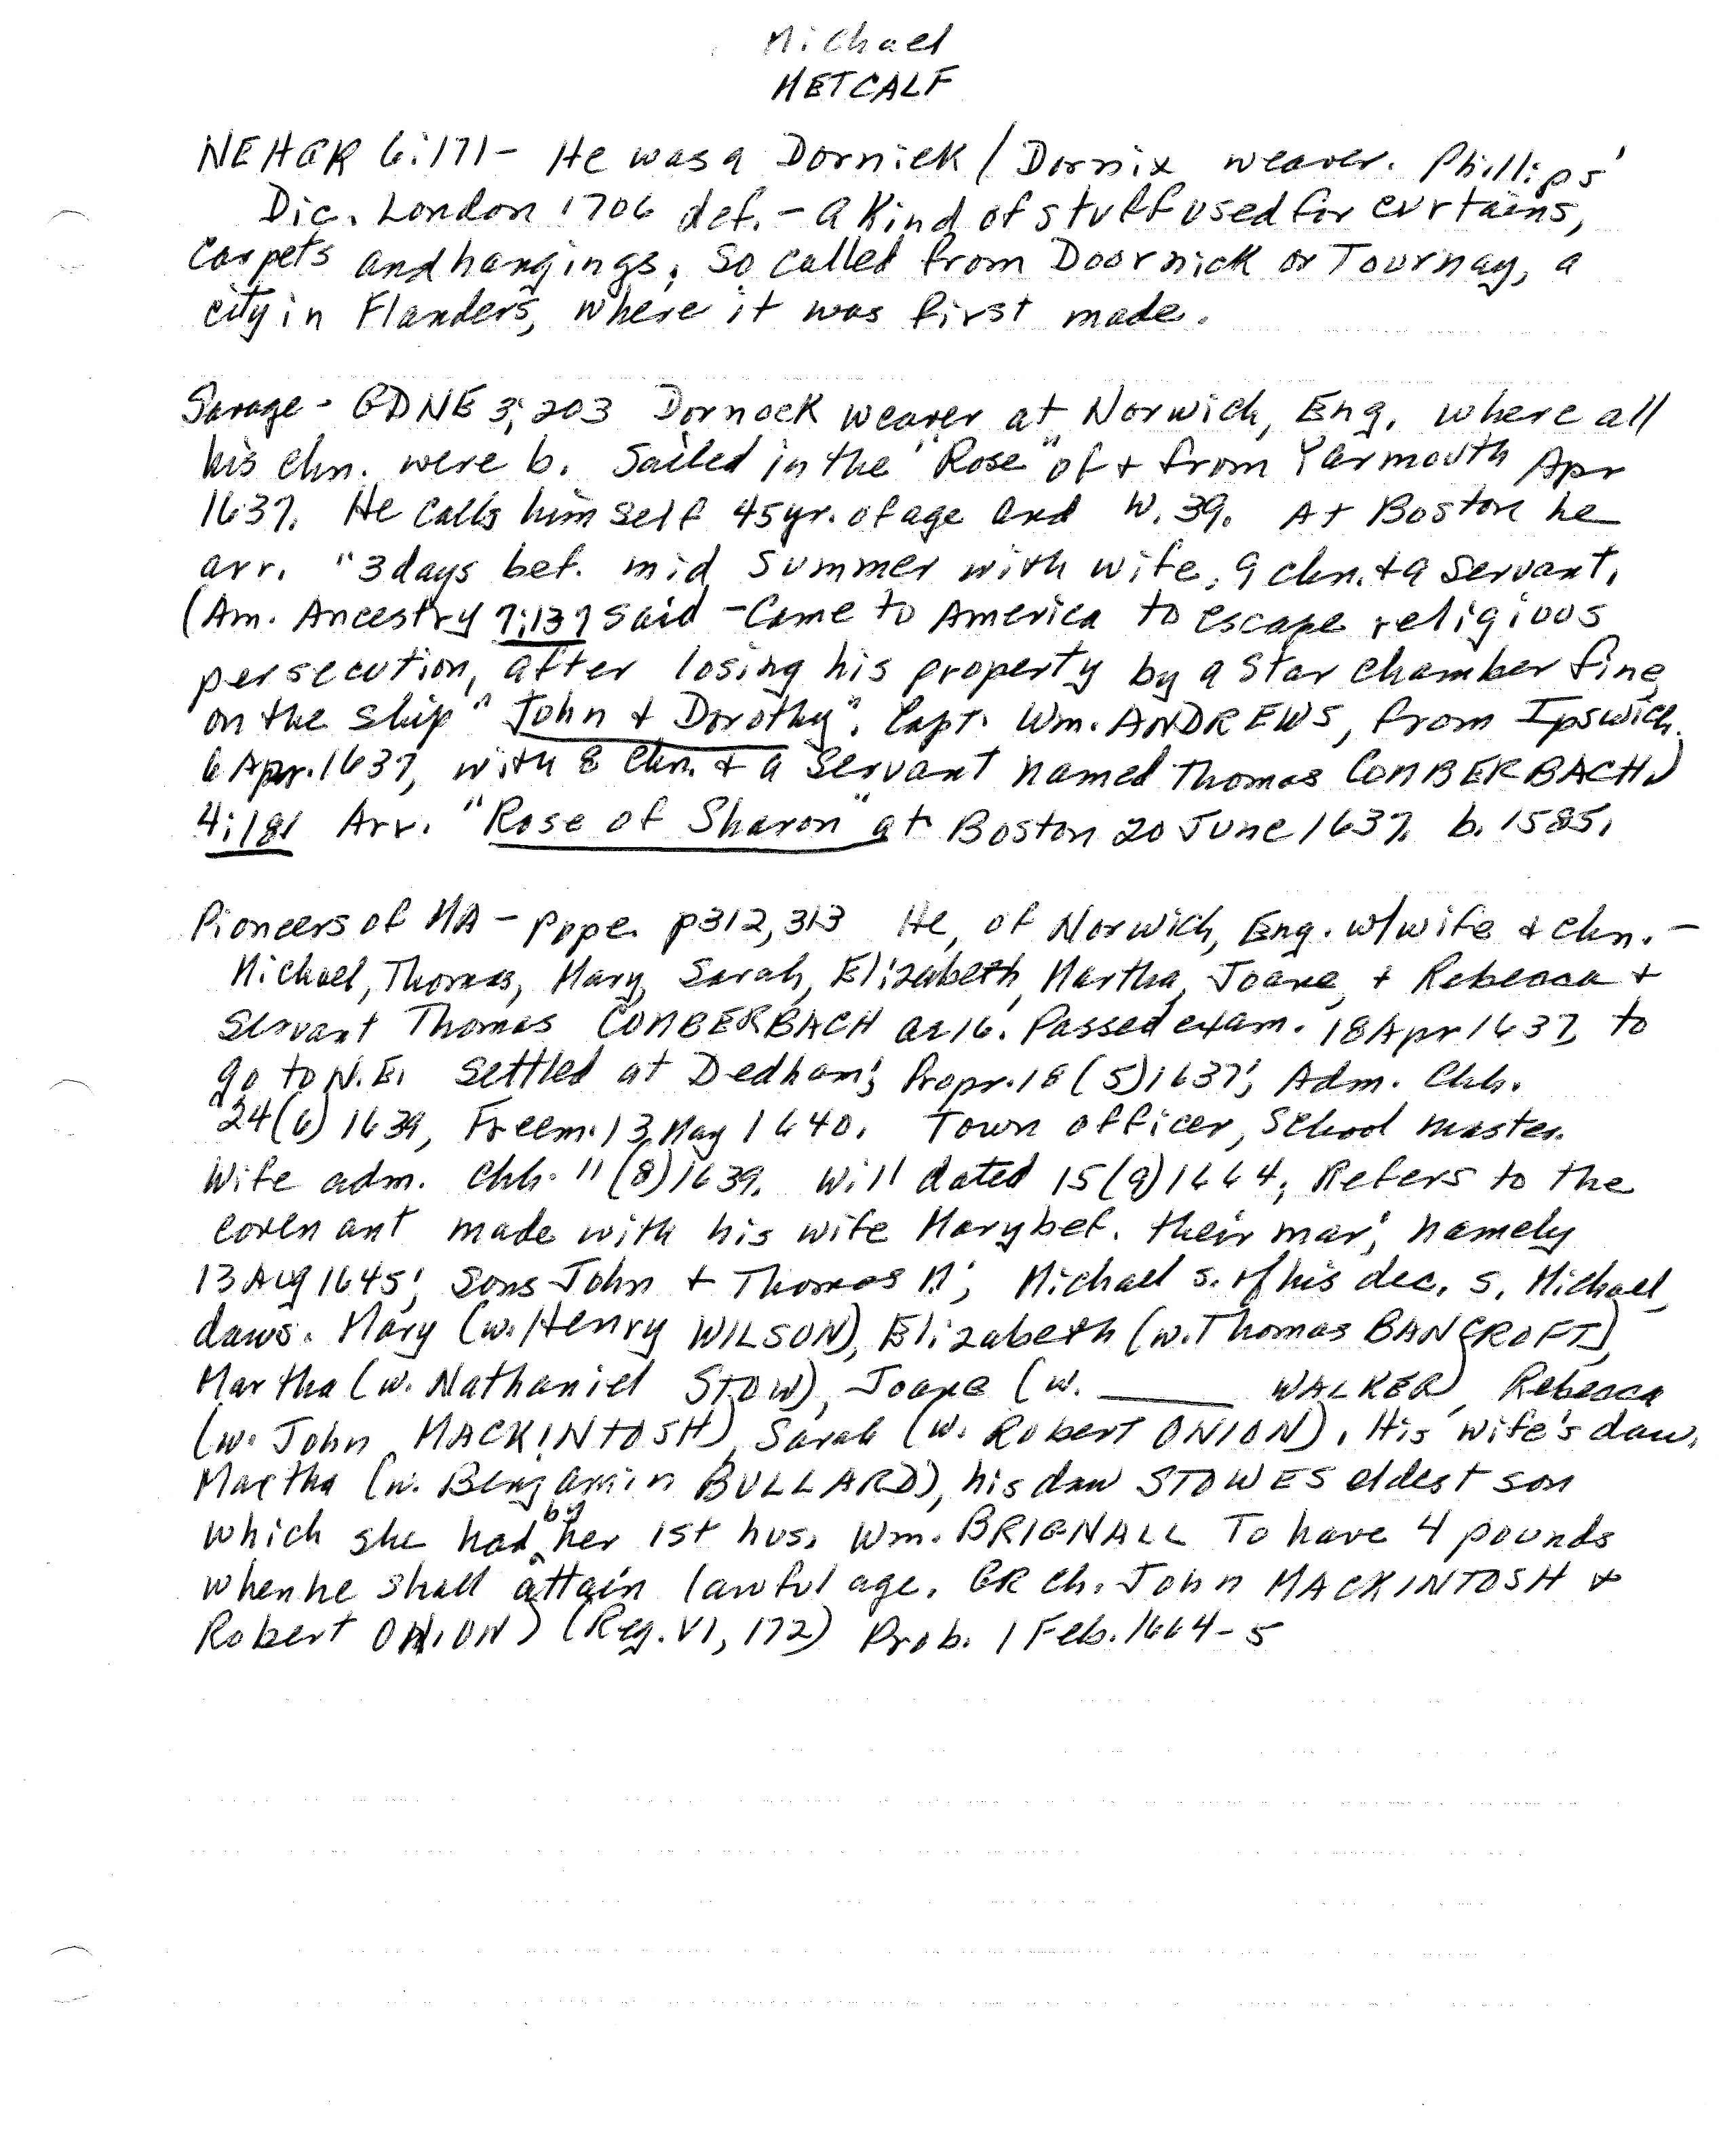 Michael
METCALF
NEHGR 6:171 - He was a Dornick / Dornix weaver. Phillips'
Dic. London 1706 def. - a kind of stuff used for curtains,
carpets and hangings; So called from Doornick or Tournay, a
city in Flanders, where it was first made.
Savage - GDNE 3;203 Dornock weaver at Norwich, Eng. where all
his chn. were b. Sailed in the "Rose" of + from Yarmouth Apr
1637. He calls himself 45yr. of age and w. 39. At Boston he
arr. "3 days bef. mid summer with wife, 9 chn. + a servant.
(Am. Ancestry 7:137 said - Came to America to escape religious
persecution, after losing his property by a Star chamber fine,
on the ship "John + Dorothy", Capt. Wm. ANDREWS, from Ipswich.
6 Apr. 1637, with 8 Chn. + a Servant named Thomas COMBERBACH.)
4:181 Arr. "Rose of Sharon" at Boston 20 June 1637. b. 1585.
Pioneers of MA - Pope. p312,313 He, of Norwich, Eng. w/wife + chn. -
Michael, Thomas, Mary, Sarah, Elizabeth, Martha, Joane, + Rebecca +
Servant Thomas COMBERBACH ae 16. Passed exam. 18 Apr 1637, to
go to N.E. Settled at Dedham; Propr. 18 (5) 1637; Adm. Chh.
24(6) 1639, Freem. 13 May 1640. Town officer, School master.
Wife adm. Chh. 11 (8) 1639. Will dated 15(9)1664; Refers to the
covenant made with his wife Mary bef. their mar; namely
13 Aug 1645; Sons John + Thomas M; Michael s. of his dec. s. Michael,
daws. Mary (w. Henry WILSON), Elizabeth (w. Thomas BANCROFT),
Martha (w. Nathaniel STOW), Joane (w. ______ WALKER), Rebecca
(w. John MACKINTOSH), Sarah (w. Robert ONION). His wife's daw.
Martha (w. Benjamin BULLARD), his daw STOWES eldest son
which she had by her 1st hus. Wm. BRIGNALL To have 4 pounds
when he shall attain lawful age. GR Ch. John MACKINTOSH +
Robert ONION) (Reg. VI, 172) Prob. 1 Feb. 1664-5